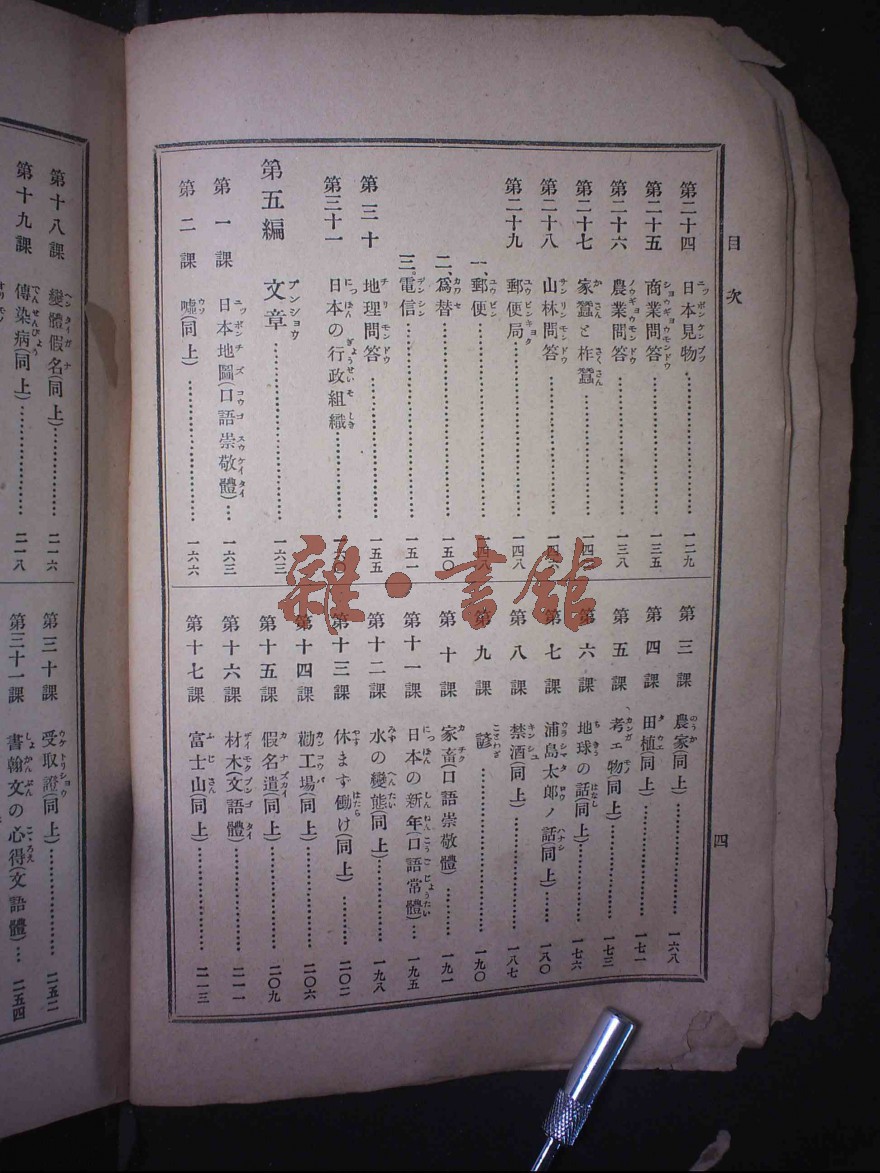 目次
第二十四 日本見物 一二九
第二十五 商業問答 一三五
第二十六 農業問答 一三八
第二十七 家蠶と柞蠶
第二十八 山林問答
第二十九 郵便局 一四八
一、郵便 一四八
二、爲替 一五〇
三、電信 一五一
第三十 地理問答 一五五
第三十一 日本の行政組織 一六〇
第五編 文章 一六三
第一課 日本地圖(口語崇敬體) 一六三
第二課 噓(同上) 一六六
第三課 農家(同上) 一六八
第四課 田植(同上) 一七一
第五課 考ェ物(同上) 一七三
第六課 地球の話(同上) 一七六
第七課 浦島太郎ノ話(同上) 一八〇
第八課 禁酒(同上) 一八七
第九課 諺 一九〇
第十課 家畜(口語崇敬體) 一九一
第十一課 日本の新年(口語常體) 一九五
第十二課 水の變態(同上) 一九八
第十三課 休まず働け(同上) 二〇二
第十四課 勸工場(同上) 二〇六
第十五課 假名遣(同上) 二〇九
第十六課 材木(文語體) 二一一
第十七課 富士山(同上) 二一三
四
第十八課 變體假名(同上) 二一六
第十九課 傳染病(同上) 二一八
第三十課 受取證(同上) 二五二
第三十一課 書翰文の心得(文語體) 二五四
雜·書館